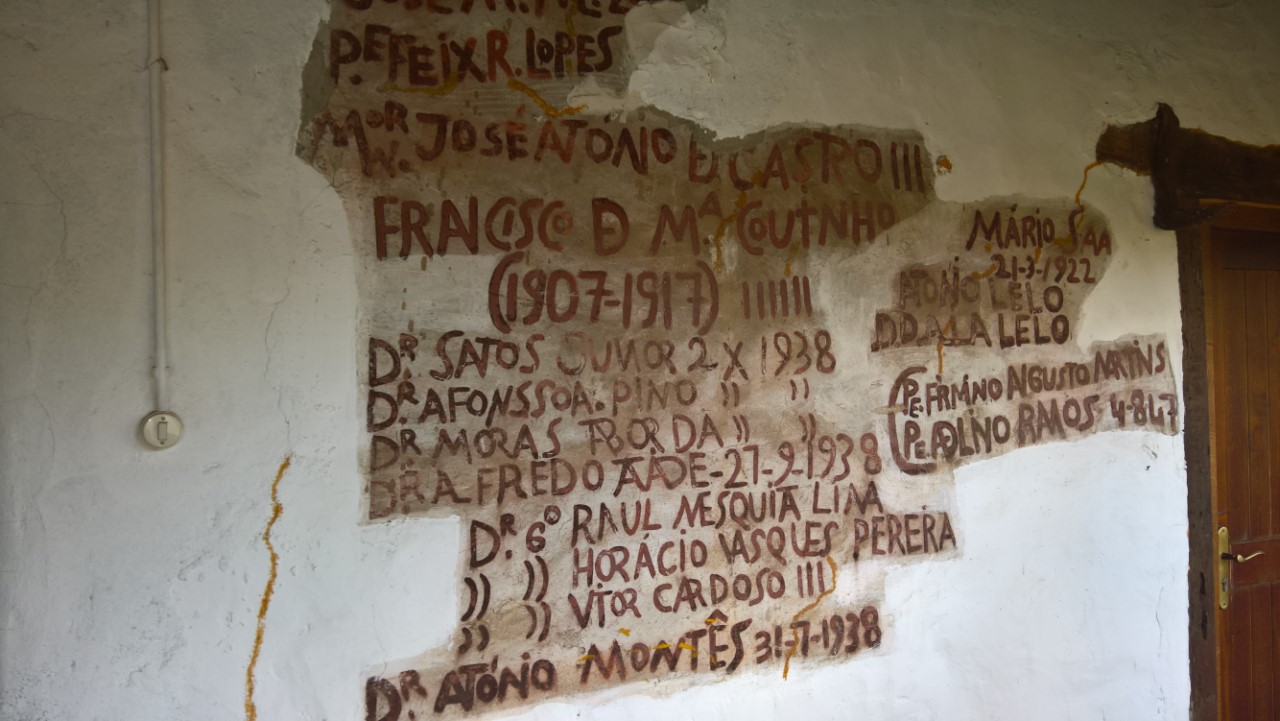 PE FEIX R. LOPES
MOR JOSÉ ATÓNIO D CASTRO III
W.
FRANCISCO D MA COUTNHO
(1907-1917) IIIIIII
DR. SATOS JUNIOR 2 X 1938
DR. AFONSSO A. PINO )) ))
DR MORAS TABORDA )) ))
DR ALFREDO - 27-9-1938
DR. 6º RAUL MESQUITA LIMA
)) )) HORÁCIO VASQUES PEREIRA
)) )) VTOR CARDOSO III
))
DR ATÓNIO MONTÊS 31-7-1938
MÁRIO SAA
21-3-1922
ATONIO LELO
D. DALILA LELO
PE. FIRMINO AUGUSTO MARTINS
PE. ADLINO RAMOS 4-8-47